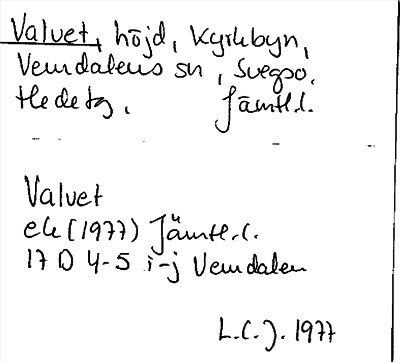 Valvet, höjd, Kyrkbyn,
Vemdalens sn, Svegso.
Hede tg. Jämtl.l.
Valvet
ek (1977) Jämtl.l.
17 D 4-5 i-j Vemdalen
L.C.J. 1977